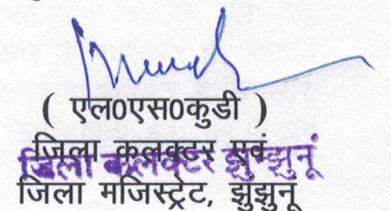 ( एल0एस0कुडी )
जिला कलक्टर एवं
जिला कलक्टर झुंझुनूं
जिला मजिस्ट्रेट, झुझुनू